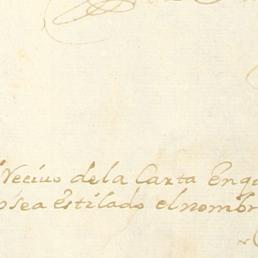 Recivo de la Carta En q
osea estilado el nombr